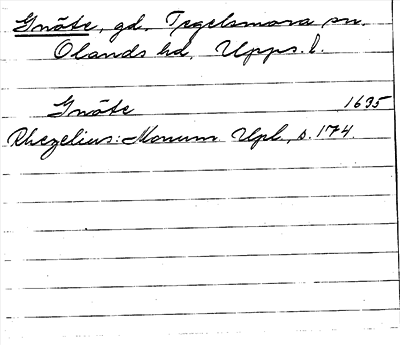 Gnöte, gd, Tegelsmora sn.
Olands hd, Upps. l.
Gnöte 1635
Rhezelius: Monum Upl, s. 174.